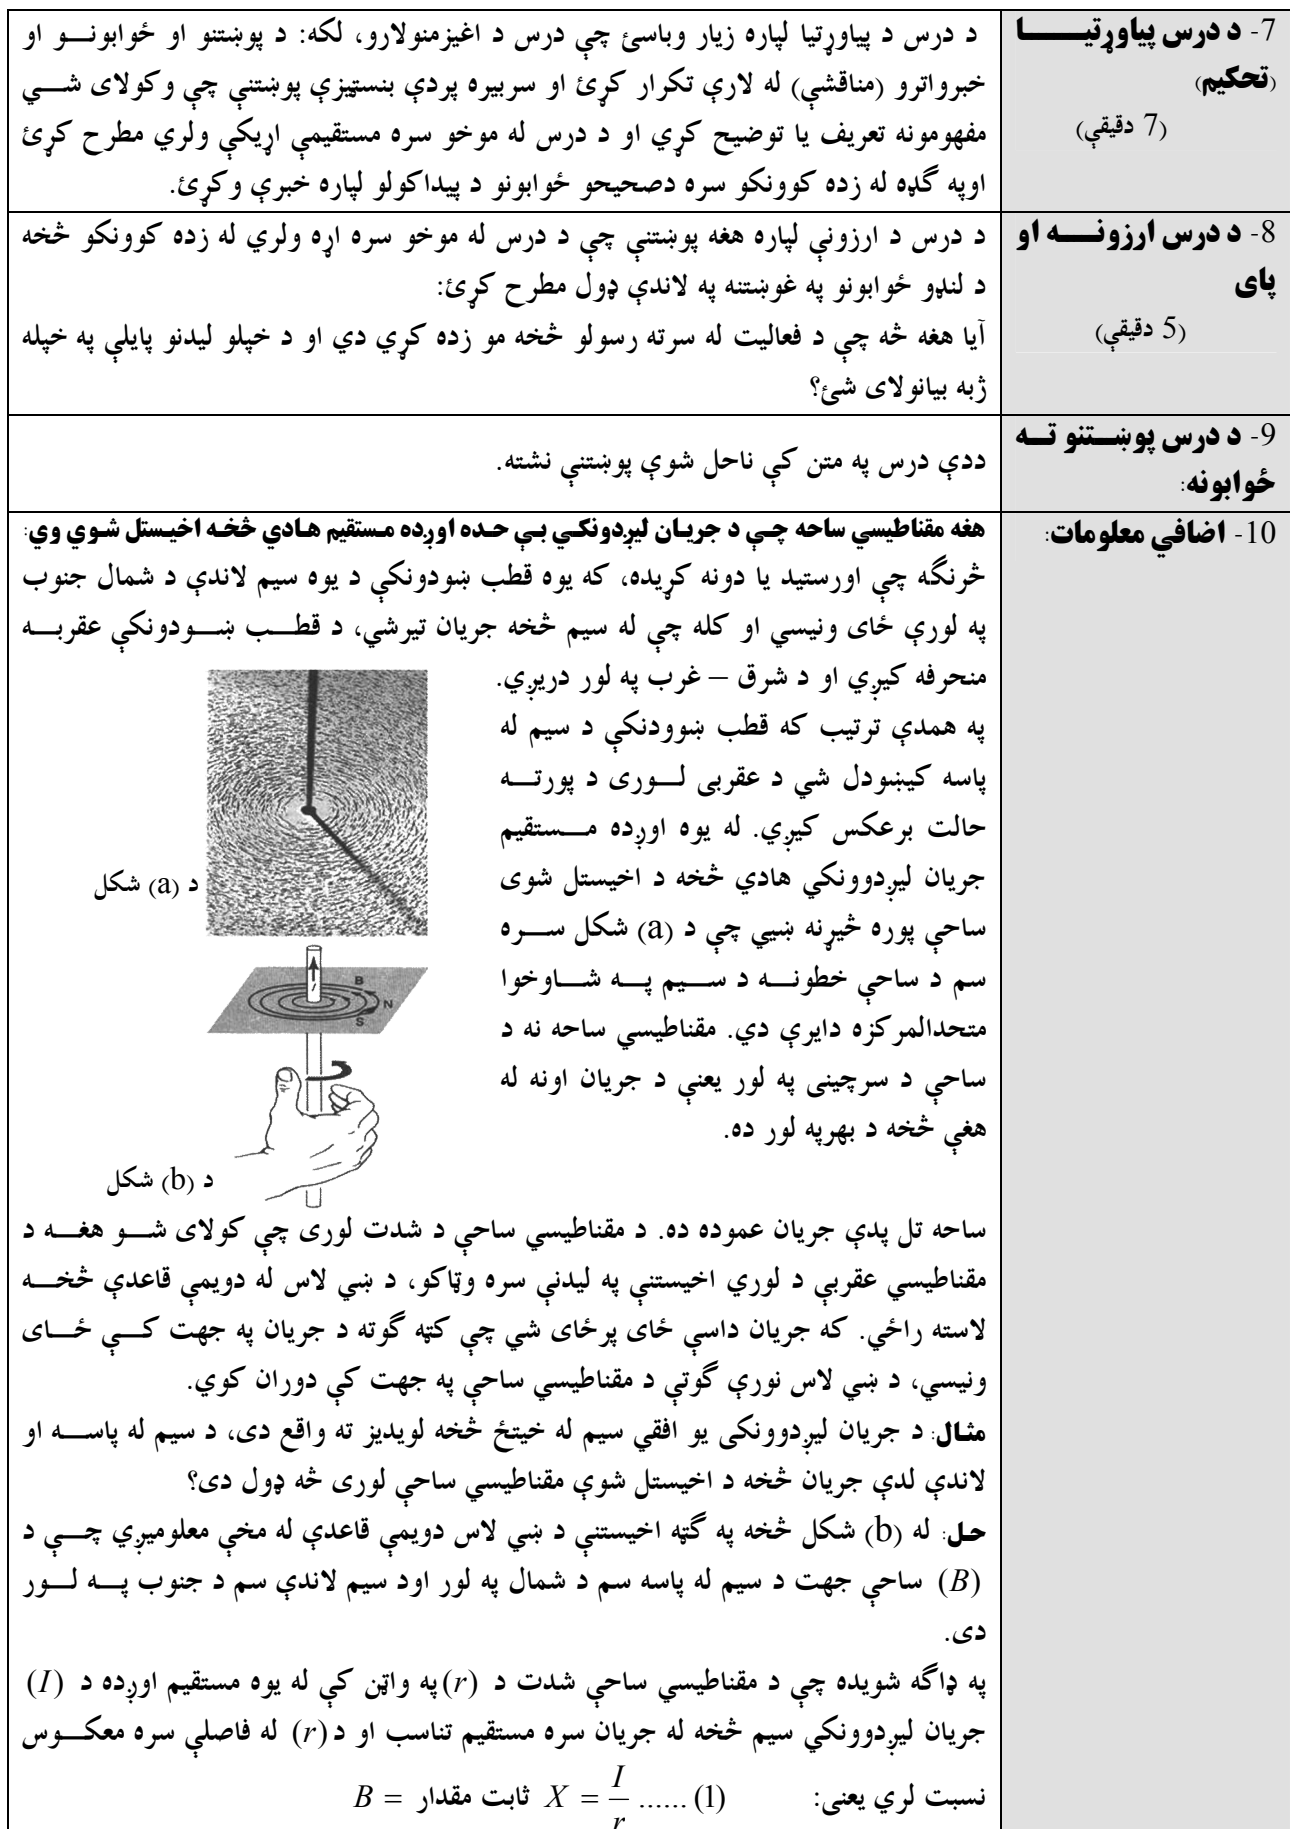 7- د درس پیاوړتیـــــا
(تحکیم)
(7 دقیقې)
د درس د پیاوړتیا لپاره زیار وباسئ چې درس د اغیزمنولارو، لکه: د پوښتنو او ځوابونـــو او
خبرواترو (مناقشې) له لارې تکرار کړئ او سربیره پردې بنسټیزې پوښتنې چې وکولای شـــي
مفهومونه تعریف یا توضیح کړي او د درس له موخو سره مستقیمې اړیکې ولري مطرح کړئ
اوپه ګډه له زده کوونکو سره دصحیحو ځوابونو د پیداکولو لپاره خبرې وکړئ.
8- د درس ارزونـــه او
پای
(5 دقیقې)
د درس د ارزونې لپاره هغه پوښتنې چې د درس له موخو سره اړه ولري له زده کوونکو څخه
د لنډو ځوابونو په غوښتنه په لاندې ډول مطرح کړئ:
آیا هغه څه چې د فعالیت له سرته رسولو څخه مو زده کړي دي او د خپلو لیدنو پایلې په خپله
ژبه بیانولای شئ؟
9- د درس پوښـــتنو تـــه
ځوابونه:
ددې درس په متن کې ناحل شوې پوښتنې نشته.
10- اضافي معلومات:
هغه مقناطیسي ساحه چـې د جریـان لیږدونکـي بـې حـده اوږده مـستقیم هـادي څخـه اخیـستل شـوي وي:
څرنګه چې اورستید یا دونه کړیده، که یوه قطب ښودونکې د یوه سیم لاندې د شمال جنوب
په لورې ځای ونیسي او کله چې له سیم څخه جریان تیرشي، د قطـــب ښـــودونکې عقربـــه
منحرفه کیږي او د شرق – غرب په لور دریږي.
په همدې ترتیب که قطب ښوودنکې د سیم له
پاسه کیښودل شي د عقربی لـــوری د پورتـــه
حالت برعکس کیږي. له یوه اوږده مـــستقیم
جریان لیږدوونکي هادي څخه د اخیستل شوی
ساحې پوره څیړنه ښیي چې د (a) شکل ســـره
سم د ساحې خطونـــه د ســـیم پـــه شـــاوخوا
متحدالمرکزه دایرې دي. مقناطیسي ساحه نه د
ساحې د سرچینی په لور یعنې د جریان اونه له
هغې څخه د بهرپه لور ده.
د (a) شکل
B
N
S
I
د (b) شکل
ساحه تل پدې جریان عموده ده. د مقناطیسي ساحې د شدت لوری چې کولای شـــو هغـــه د
مقناطیسي عقربې د لوري اخیستنې په لیدنې سره وټاکو، د ښي لاس له دویمې قاعدې څخـــه
لاسته راځي. که جریان داسې ځای پرځای شي چې کټه ګوته د جریان په جهت کـــې ځـــای
ونیسي، د ښي لاس نورې ګوتې د مقناطیسي ساحې په جهت کې دوران کوي.
مثال: د جریان لیږدوونکی یو افقي سیم له خیتځ څخه لویدیز ته واقع دی، د سیم له پاســـه او
لاندې لدې جریان څخه د اخیستل شوې مقناطیسي ساحې لوری څه ډول دی؟
حل: له (b) شکل څخه په ګټه اخیستنې د ښي لاس دویمې قاعدې له مخې معلومیږي چـــې د
(B) ساحې جهت د سیم له پاسه سم د شمال په لور اود سیم لاندې سم د جنوب پـــه لـــور
دی.
په ډاګه شویده چې د مقناطیسي ساحې شدت د (r) په واټن کې له یوه مستقیم اوږده د (I)
جریان لیږدوونکي سیم څخه له جریان سره مستقیم تناسب او د (r) له فاصلې سره معکـــوس
نسبت لري یعنی: B = ثابت مقدار X = I/r ...... (1)